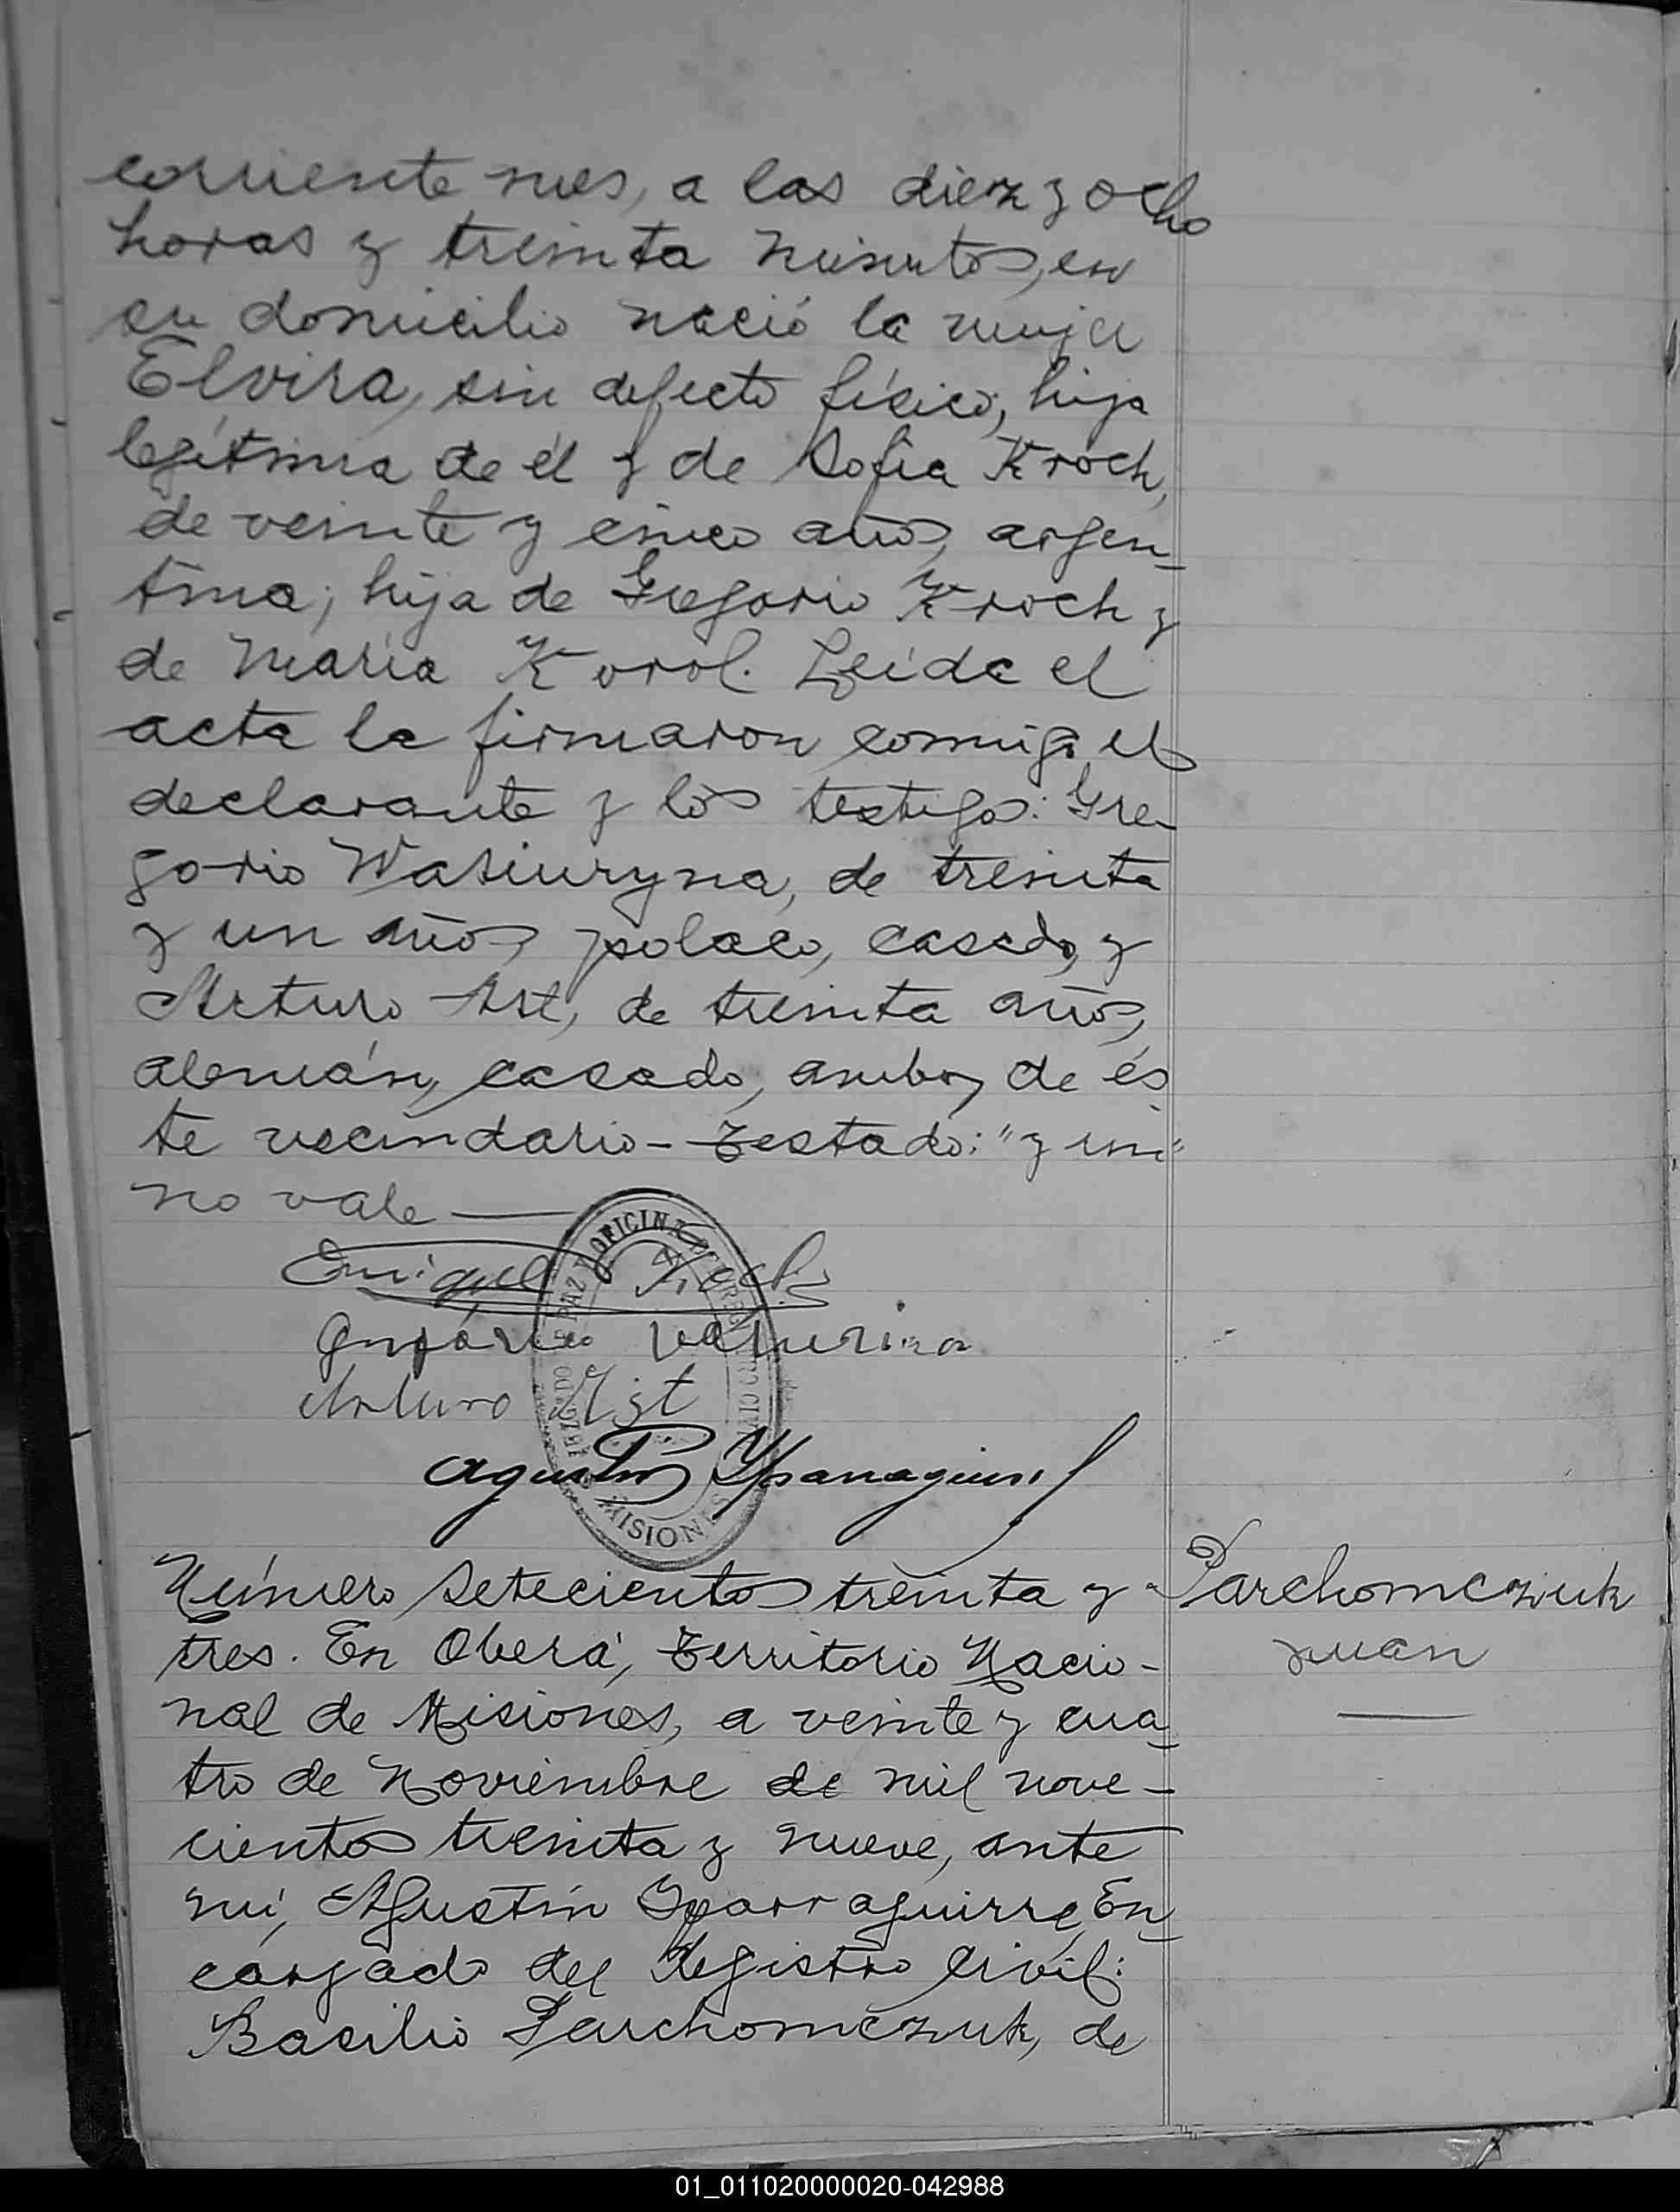 corriente mes, a las diez y ocho
horas y treinta minutos, en
su domicilio nació la mujer
Elvira, sin defecto físico, hija
legítima de él y de Sofía Kroch,
de veinte y cinco años, argen-
tina; hija de Gregorio Kroch y
de María Korol. Leida el
acta la firmaron conmigo el
declarante y los testigos: Gre-
gorio Wasiuryna, de treinta
y un años, polaco, casado, y
Arturo Ast, de treinta años,
alemán, casado, ambos de és
te vecindario - Testado: "y un"
no vale
Enrique
Arturo
Agustín Yparraguirre
OFICINA
MISIONES
Número setecientos treinta y
tres. En Oberá, Territorio Nacio-
nal de Misiones, a veinte y cua-
tro de Noviembre de mil nove-
cientos treinta y nueve, ante
mí, Agustín Yparraguirre, En-
cargado del Registro Civil:
Basilio Parchomczuk, de
Parchomczuk
Juan
01_011020000020-042988